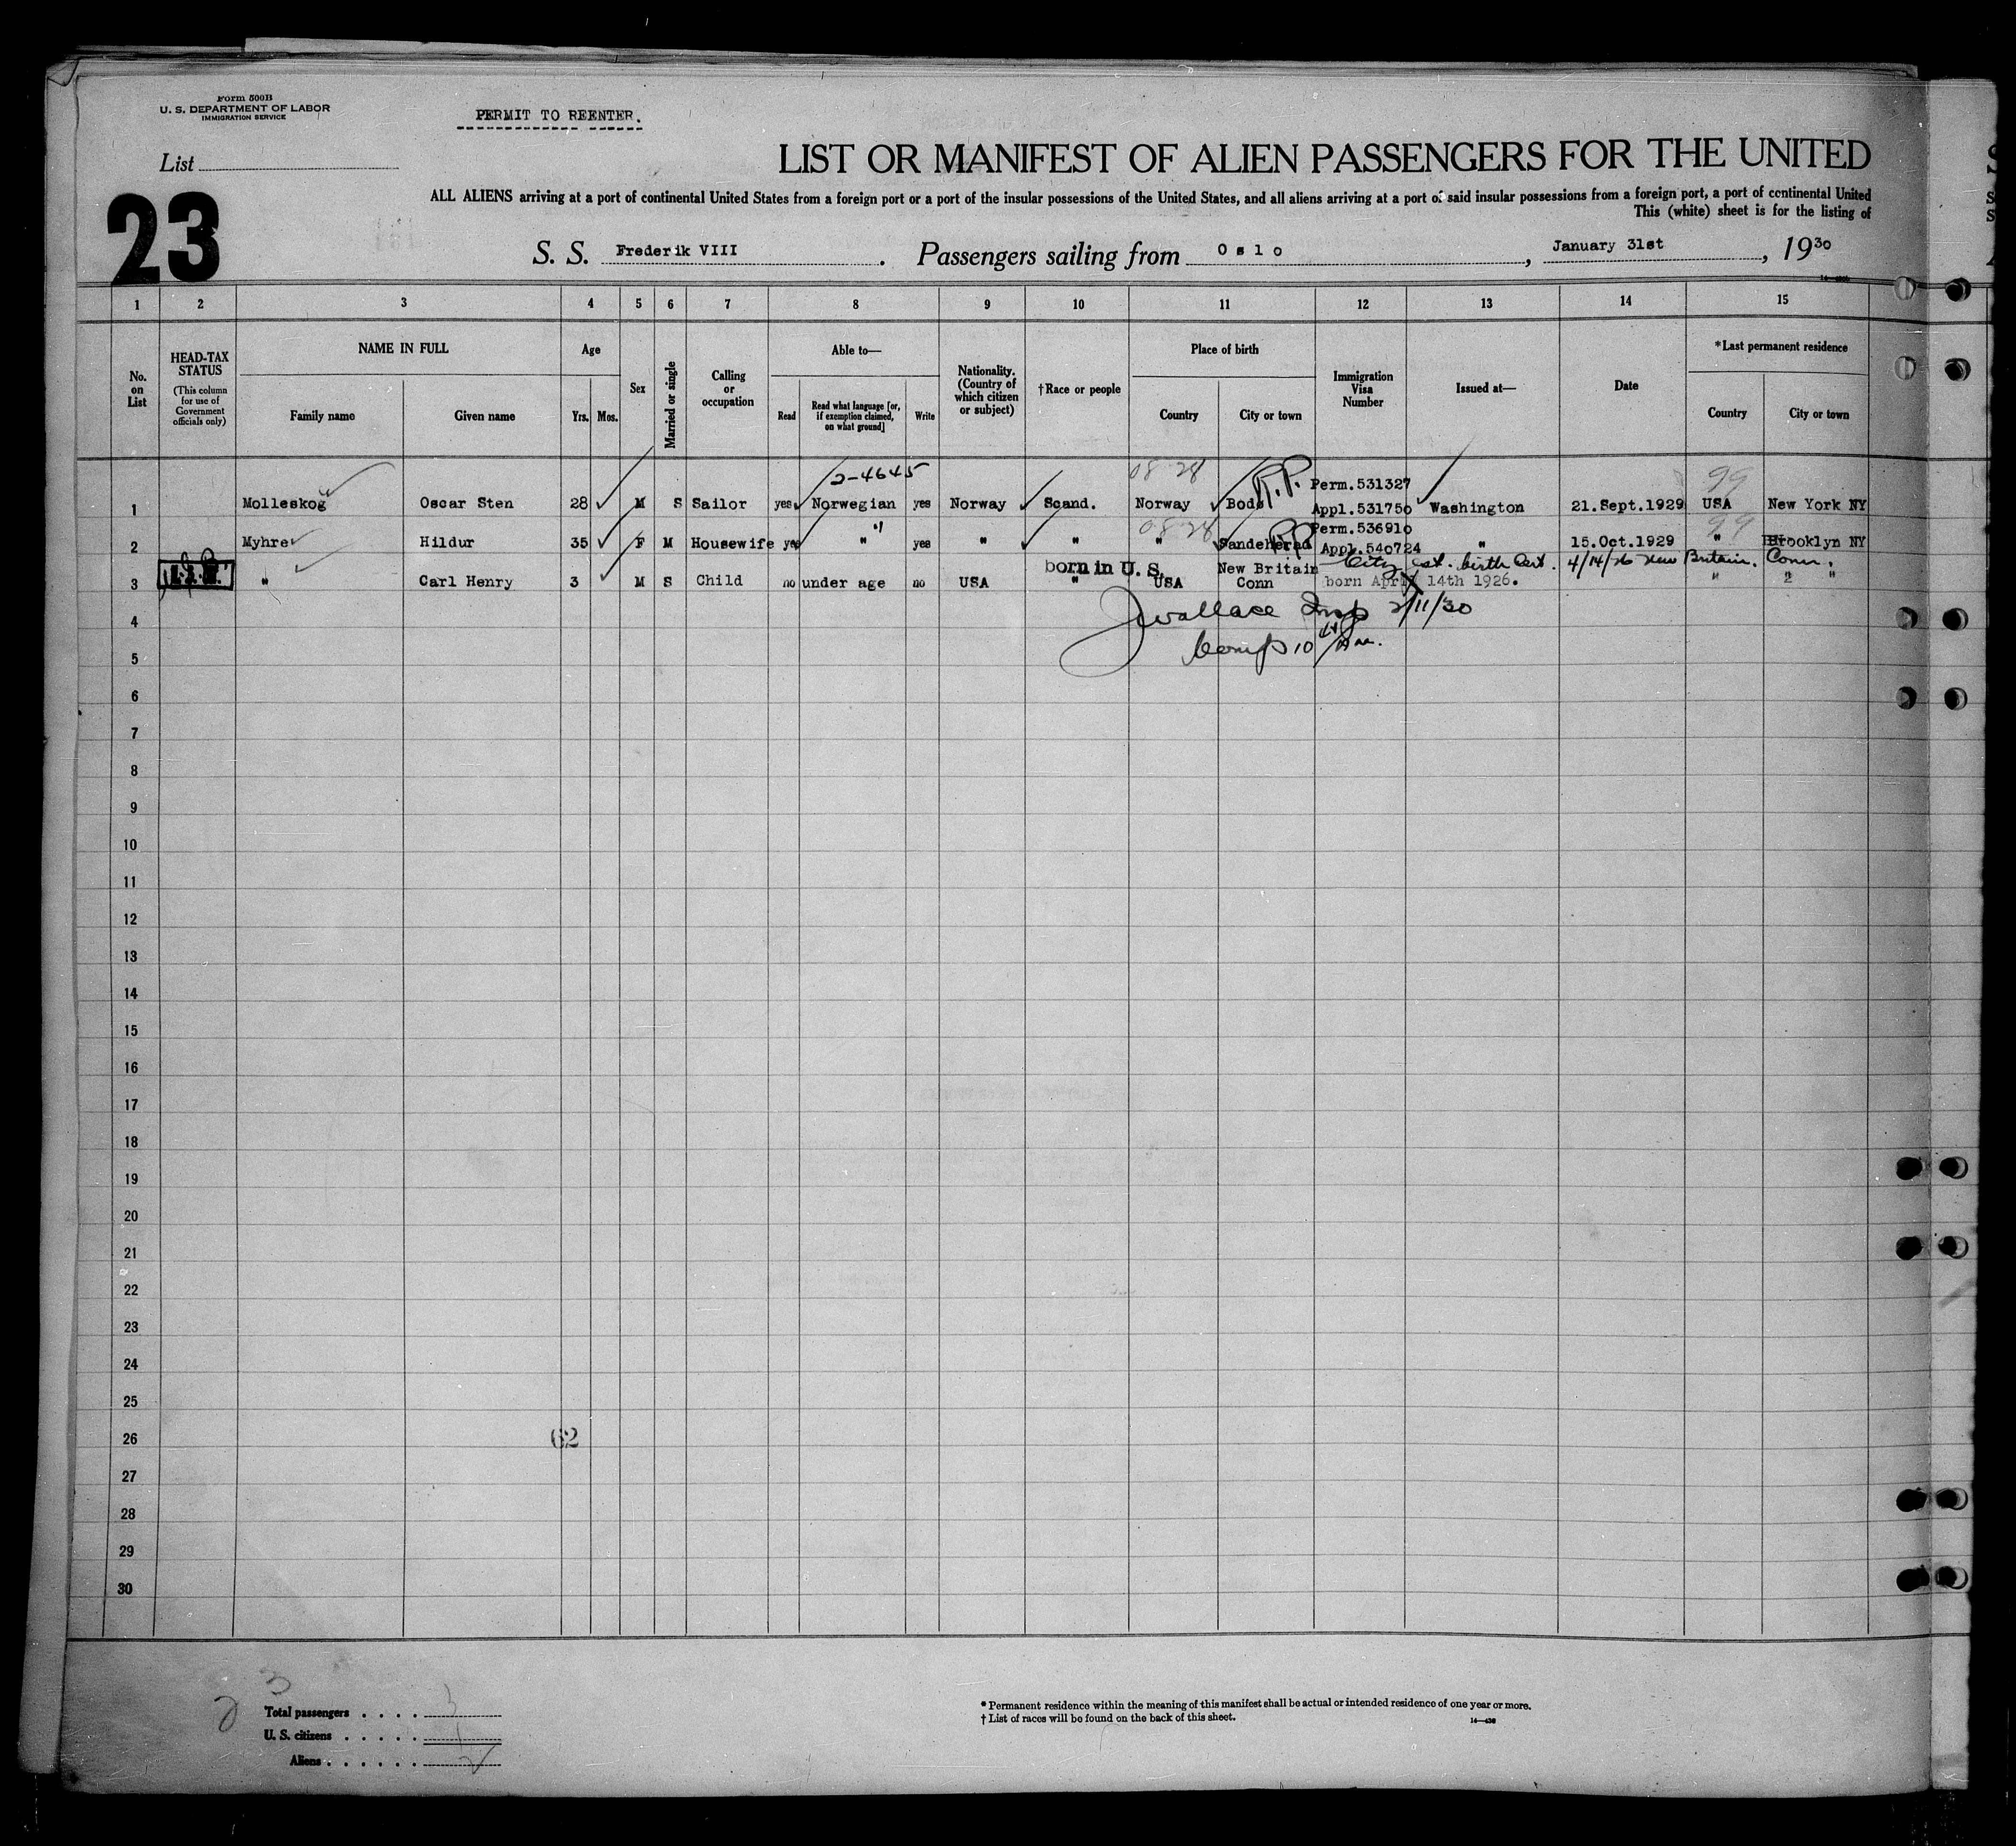 Form 500B
U. S. DEPARTMENT OF LABOR
IMMIGRATION SERVICE
PERMIT TO REENTER.
List
LIST OR MANIFEST OF ALIEN PASSENGERS FOR THE UNITED
ALL ALIENS arriving at a port of continental United States from a foreign port or a port of the insular possessions of the United States, and all aliens arriving at a port of said insular possessions from a foreign port, a port of continental United
This (white) sheet is for the listing of
23
S. S. Frederik VIII. Passengers sailing from Oslo, January 31st, 1930
1 2 3 4 5 6 7 8 9 10 11 12 13 14 15
No. on List
HEAD-TAX STATUS
(This column for use of Government officials only)
NAME IN FULL
Family name Given name
Age
Yrs. Mos.
Sex
Married or single
Calling or occupation
Able to—
Read Read what language [or, if exemption claimed, on what ground] Write
Nationality. (Country of which citizen or subject)
†Race or people
Place of birth
Country City or town
Immigration Visa Number
Issued at—
Date
*Last permanent residence
Country City or town
2-4645 08-28 R.P. Perm.531327 99
1 Molleskog Oscar Sten 28 M S Sailor yes Norwegian yes Norway Scand. Norway Bodo Appl.531750 Washington 21.Sept.1929 USA New York NY
08-28 RP Perm.536910 99
2 Myhre Hildur 35 F M Housewife yes " yes " " " Sandeherad Appl.540724 " 15.Oct.1929 " Brooklyn NY
born in U. S. New Britain City birth Cert. 4/14/26 New Britain, Conn.
3 " Carl Henry 3 M S Child no under age no USA " USA Conn born April 14th 1926. " "
4 J Wallace Insp 2/11/30
5 Comp 10
6
7
8
9
10
11
12
13
14
15
16
17
18
19
20
21
22
23
24
25
26 62
27
28
29
30
2 3
Total passengers . . . . 3
U. S. citizens . . . . . 1
Aliens . . . . . . 2
* Permanent residence within the meaning of this manifest shall be actual or intended residence of one year or more.
† List of races will be found on the back of this sheet.